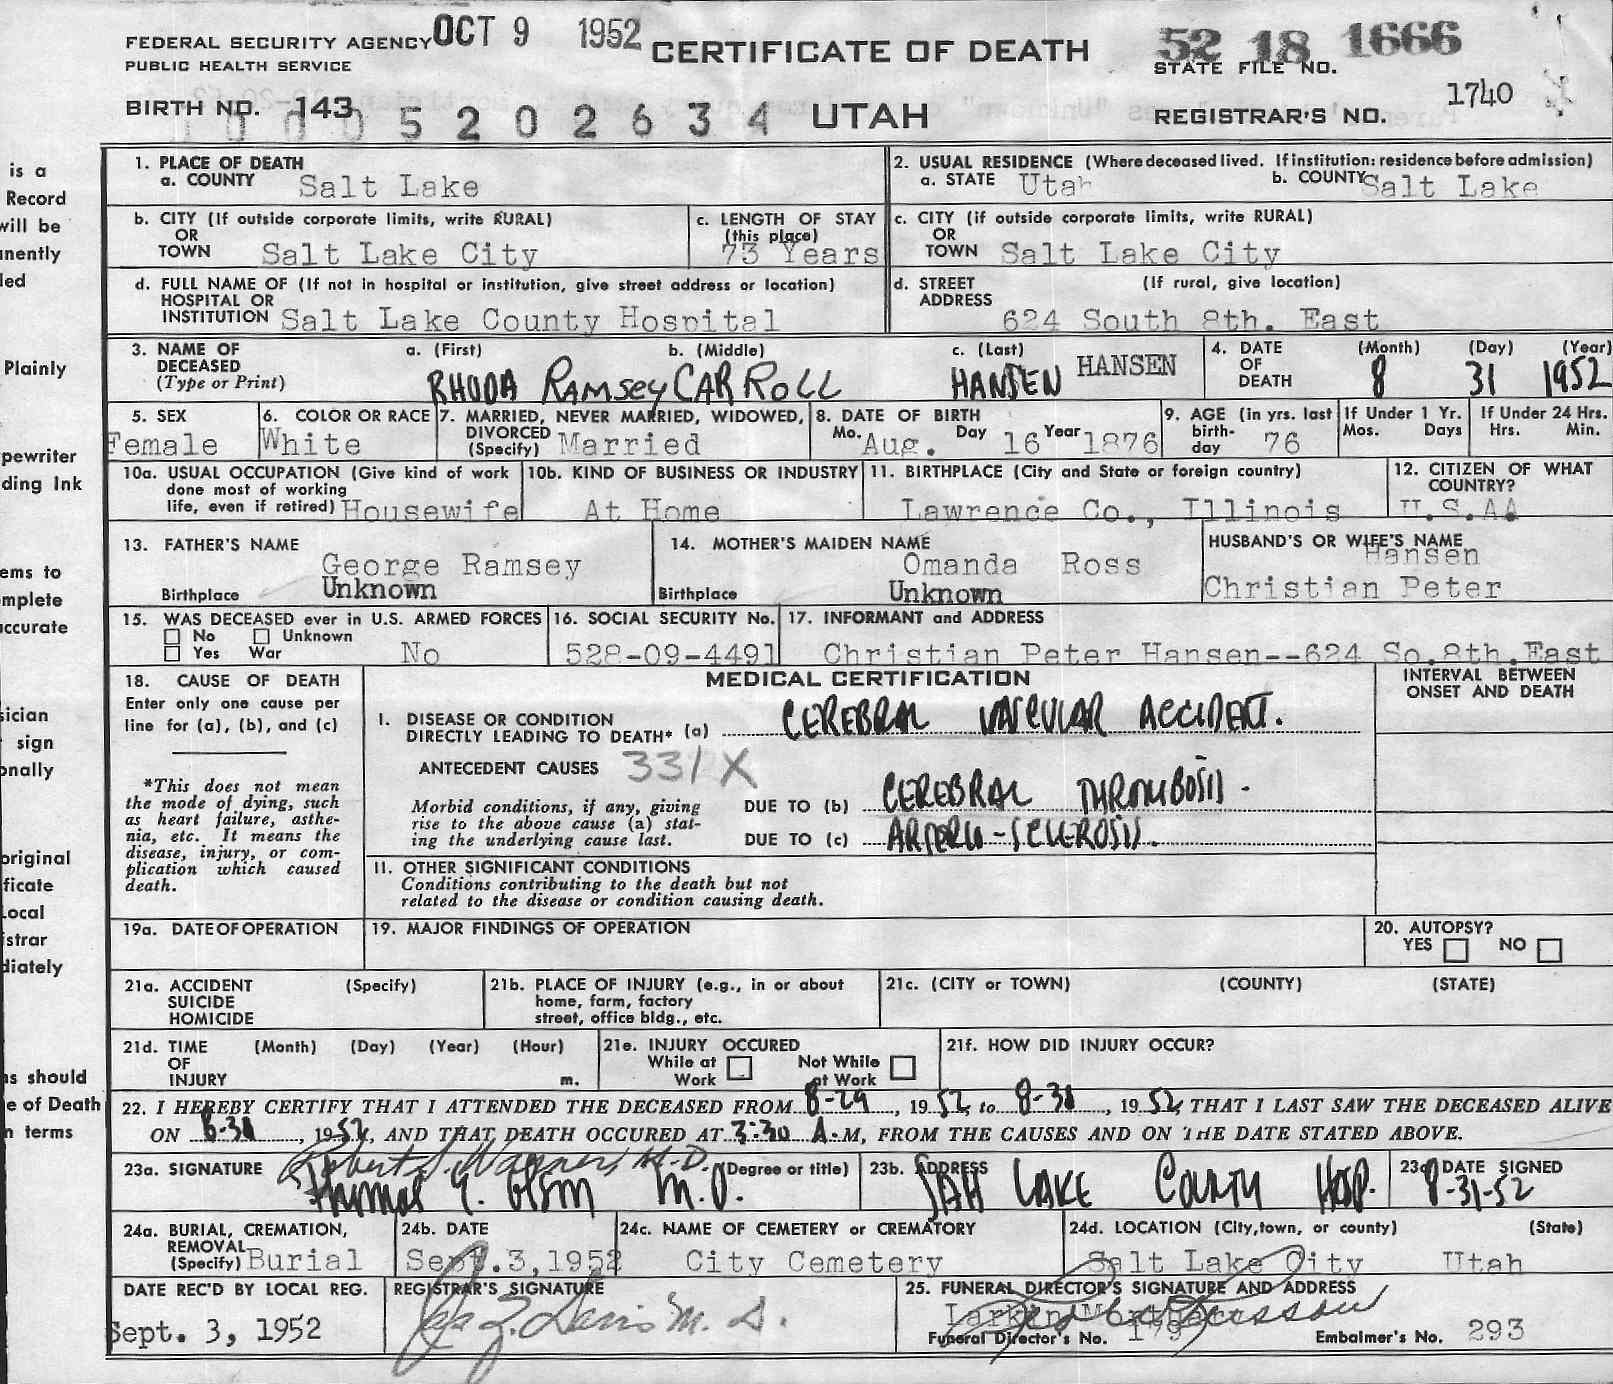 FEDERAL SECURITY AGENCY OCT 9 1952 CERTIFICATE OF DEATH 52 18 1666
PUBLIC HEALTH SERVICE STATE FILE NO.
BIRTH NO. 143 UTAH REGISTRAR'S NO. 1740
5 2 0 2 6 3 4
is a
Record
will be
nently
led
Plainly
pewriter
ding Ink
ems to
mplete
accurate
sician
sign
onally
original
ficate
Local
istrar
diately
as should
e of Death
n terms
1. PLACE OF DEATH
a. COUNTY Salt Lake
2. USUAL RESIDENCE (Where deceased lived. If institution: residence before admission)
a. STATE Utah b. COUNTY Salt Lake
b. CITY (If outside corporate limits, write RURAL)
OR
TOWN Salt Lake City
c. LENGTH OF STAY
(this place)
73 Years
c. CITY (if outside corporate limits, write RURAL)
OR
TOWN Salt Lake City
d. FULL NAME OF (If not in hospital or institution, give street address or location)
HOSPITAL OR
INSTITUTION Salt Lake County Hospital
d. STREET (If rural, give location)
ADDRESS
624 South 8th. East
3. NAME OF a. (First) b. (Middle) c. (Last)
DECEASED
(Type or Print) RHODA RAMSEY CARROLL HANSEN HANSEN
4. DATE (Month) (Day) (Year)
OF
DEATH 8 31 1952
5. SEX
Female
6. COLOR OR RACE
White
7. MARRIED, NEVER MARRIED, WIDOWED,
DIVORCED
(Specify) Married
8. DATE OF BIRTH
Mo. Aug. Day 16 Year 1876
9. AGE (in yrs. last
birth-
day 76
If Under 1 Yr.
Mos. Days
If Under 24 Hrs.
Hrs. Min.
10a. USUAL OCCUPATION (Give kind of work
done most of working
life, even if retired) Housewife
10b. KIND OF BUSINESS OR INDUSTRY
At Home
11. BIRTHPLACE (City and State or foreign country)
Lawrence Co., Illinois
12. CITIZEN OF WHAT
COUNTRY?
U.S.AA
13. FATHER'S NAME
George Ramsey
Birthplace Unknown
14. MOTHER'S MAIDEN NAME
Omanda Ross
Birthplace Unknown
HUSBAND'S OR WIFE'S NAME
Hansen
Christian Peter
15. WAS DECEASED ever in U.S. ARMED FORCES
No Unknown
Yes War No
16. SOCIAL SECURITY No.
528-09-4491
17. INFORMANT and ADDRESS
Christian Peter Hansen--624 So.8th.East
18. CAUSE OF DEATH
Enter only one cause per
line for (a), (b), and (c)
*This does not mean
the mode of dying, such
as heart failure, asthe-
nia, etc. It means the
disease, injury, or com-
plication which caused
death.
MEDICAL CERTIFICATION
INTERVAL BETWEEN
ONSET AND DEATH
I. DISEASE OR CONDITION
DIRECTLY LEADING TO DEATH* (a) CEREBRAL VASCULAR ACCIDENT.
ANTECEDENT CAUSES 331X
Morbid conditions, if any, giving
rise to the above cause (a) stat-
ing the underlying cause last.
DUE TO (b) CEREBRAL THROMBOSIS.
DUE TO (c) ARTERIO-SCLEROSIS.
11. OTHER SIGNIFICANT CONDITIONS
Conditions contributing to the death but not
related to the disease or condition causing death.
19a. DATE OF OPERATION
19. MAJOR FINDINGS OF OPERATION
20. AUTOPSY?
YES NO
21a. ACCIDENT (Specify)
SUICIDE
HOMICIDE
21b. PLACE OF INJURY (e.g., in or about
home, farm, factory
street, office bldg., etc.
21c. (CITY or TOWN) (COUNTY) (STATE)
21d. TIME (Month) (Day) (Year) (Hour)
OF
INJURY m.
21e. INJURY OCCURED
While at Not While
Work at Work
21f. HOW DID INJURY OCCUR?
22. I HEREBY CERTIFY THAT I ATTENDED THE DECEASED FROM 8-29, 1952, to 8-31, 1952, THAT I LAST SAW THE DECEASED ALIVE
ON 8-31, 1952, AND THAT DEATH OCCURED AT 3:30 A.M, FROM THE CAUSES AND ON THE DATE STATED ABOVE.
23a. SIGNATURE Robert S. Wagner M.D. (Degree or title)
Thomas E. Olson M.D.
23b. ADDRESS
Salt LAKE COUNTY HOSP.
23c. DATE SIGNED
8-31-52
24a. BURIAL, CREMATION,
REMOVAL
(Specify) Burial
24b. DATE
Sept.3,1952
24c. NAME OF CEMETERY or CREMATORY
City Cemetery
24d. LOCATION (City,town, or county) (State)
Salt Lake City Utah
DATE REC'D BY LOCAL REG.
Sept. 3, 1952
REGISTRAR'S SIGNATURE
Davis M.D.
25. FUNERAL DIRECTOR'S SIGNATURE AND ADDRESS
Larkin Mortuary
Funeral Director's No. 179 Embalmer's No. 293